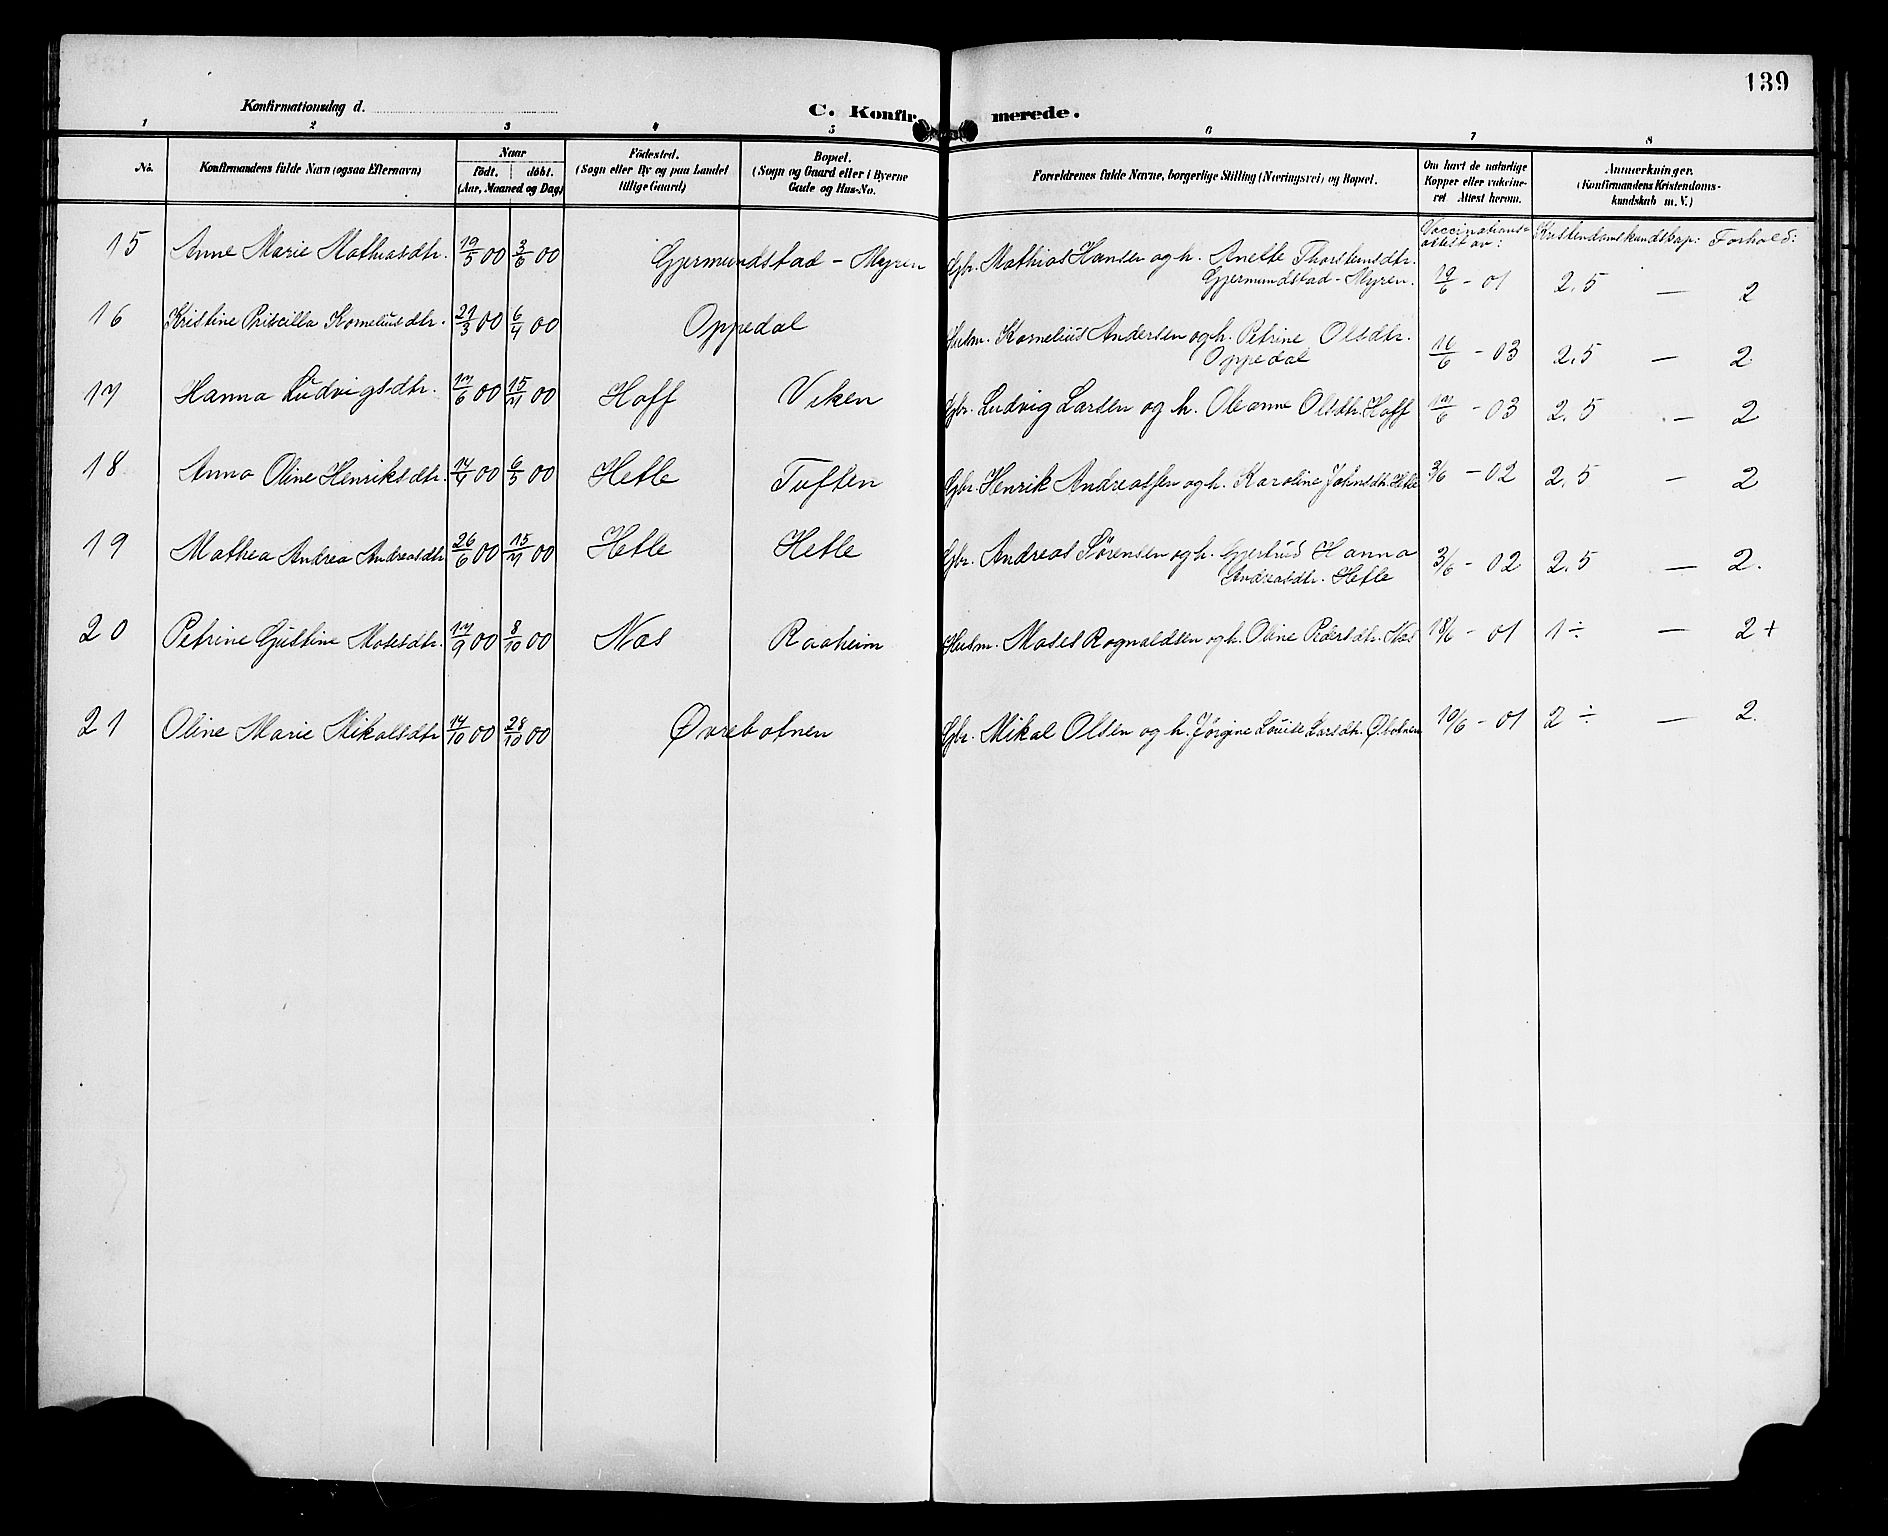 139
Konfirmationsdag d.
C. Konfirmerede.
1 2 3 4 5 6 7 8
No.
Konfirmandens fulde Navn (ogsaa Efternavn)
Naar
födt. | döbt.
(Aar, Maaned og Dag)
Födested.
(Sogn eller By og paa Landet
tillige Gaard)
Bopæl.
(Sogn og Gaard eller i Byerne
Gade og Hus-No.
Forældrenes fulde Navne, borgerlige Stilling (Næringsvei) og Bopæl.
Om havt de naturlige
Kopper eller vakcine-
ret Attest herom.
Anmærkninger.
(Konfirmandens Kristendoms-
kundskab m. V.)
Vaccinations-
attest av:
Kristendomskundskap: Forhold:
15 Anne Marie Mathiasdtr. 19/5 00 3/6 00 Gjermundstad - Myren Gbr. Mathias Hansen og h. Anette Thorstensdtr.
Gjermundstad - Myren. 19/6 - 01 2.5 — 2
16 Kristine Priscilla Korneliusdtr. 21/3 00 6/4 00 Oppedal Husm. Kornelius Andersen og h. Petrine Olsdtr.
Oppedal 16/6 - 03 2.5 — 2
17 Hanna Ludvigsdtr. 17/6 00 15/7 00 Hoff Viken Gbr. Ludvig Larsen og h. Oleanne Olsdtr. Hoff 17/6 - 03 2.5 — 2
18 Anna Oline Henriksdtr. 14/4 00 6/5 00 Hetle Tuften Gbr. Henrik Andreassen og h. Karoline Johnsdtr. Hetle 3/6 - 02 2.5 — 2
19 Mathea Andrea Andreasdtr 26/6 00 15/7 00 Hetle Hetle Gbr. Andreas Sørensen og h. Gjertrud Hanna
Andreasdtr. Hetle 3/6 - 02 2.5 — 2.
20 Petrine Gjustine Mosesdtr. 17/9 00 8/10 00 Nas Raaheim Husm. Moses Rognaldsen og h. Oline Pedersdtr. Nas 18/6 - 01 1 ÷ — 2 +
21 Oline Marie Mikalsdtr 14/10 00 28/10 00 Øvrebotnen Gbr. Mikal Olsen og h. Jørgine Louise Larsdtr. Øbotnen 19/6 - 01 2 ÷ — 2.